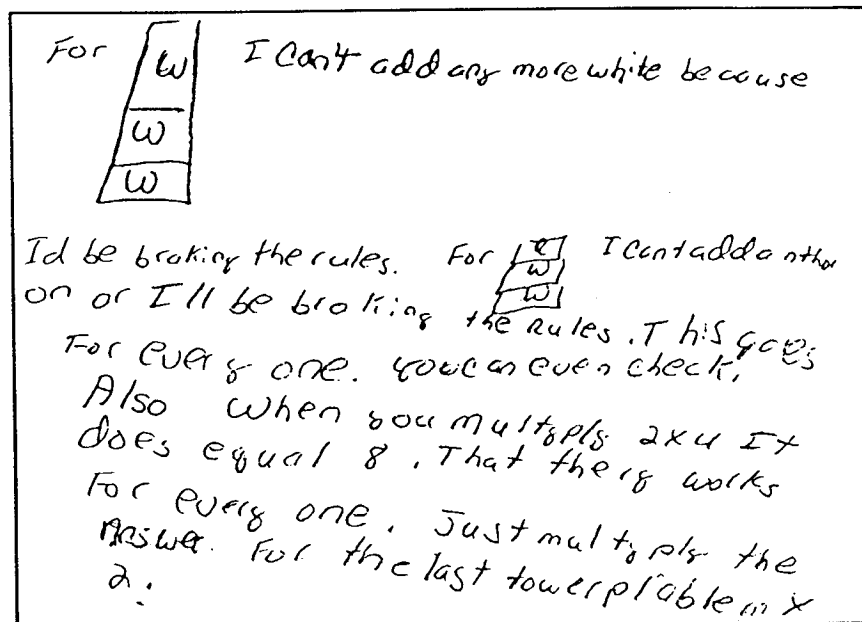 For W I Can't add any more white because
W
W
Id be broking the rules. For R I Cant add a nthor
W
W
on or I'll be broking the Rules. This goes
For every one. you can even check.
Also when you multyply 2x4 It
does equal 8. That thery works
For every one. Just multyply the
Answer. For the last tower plablem x
2.